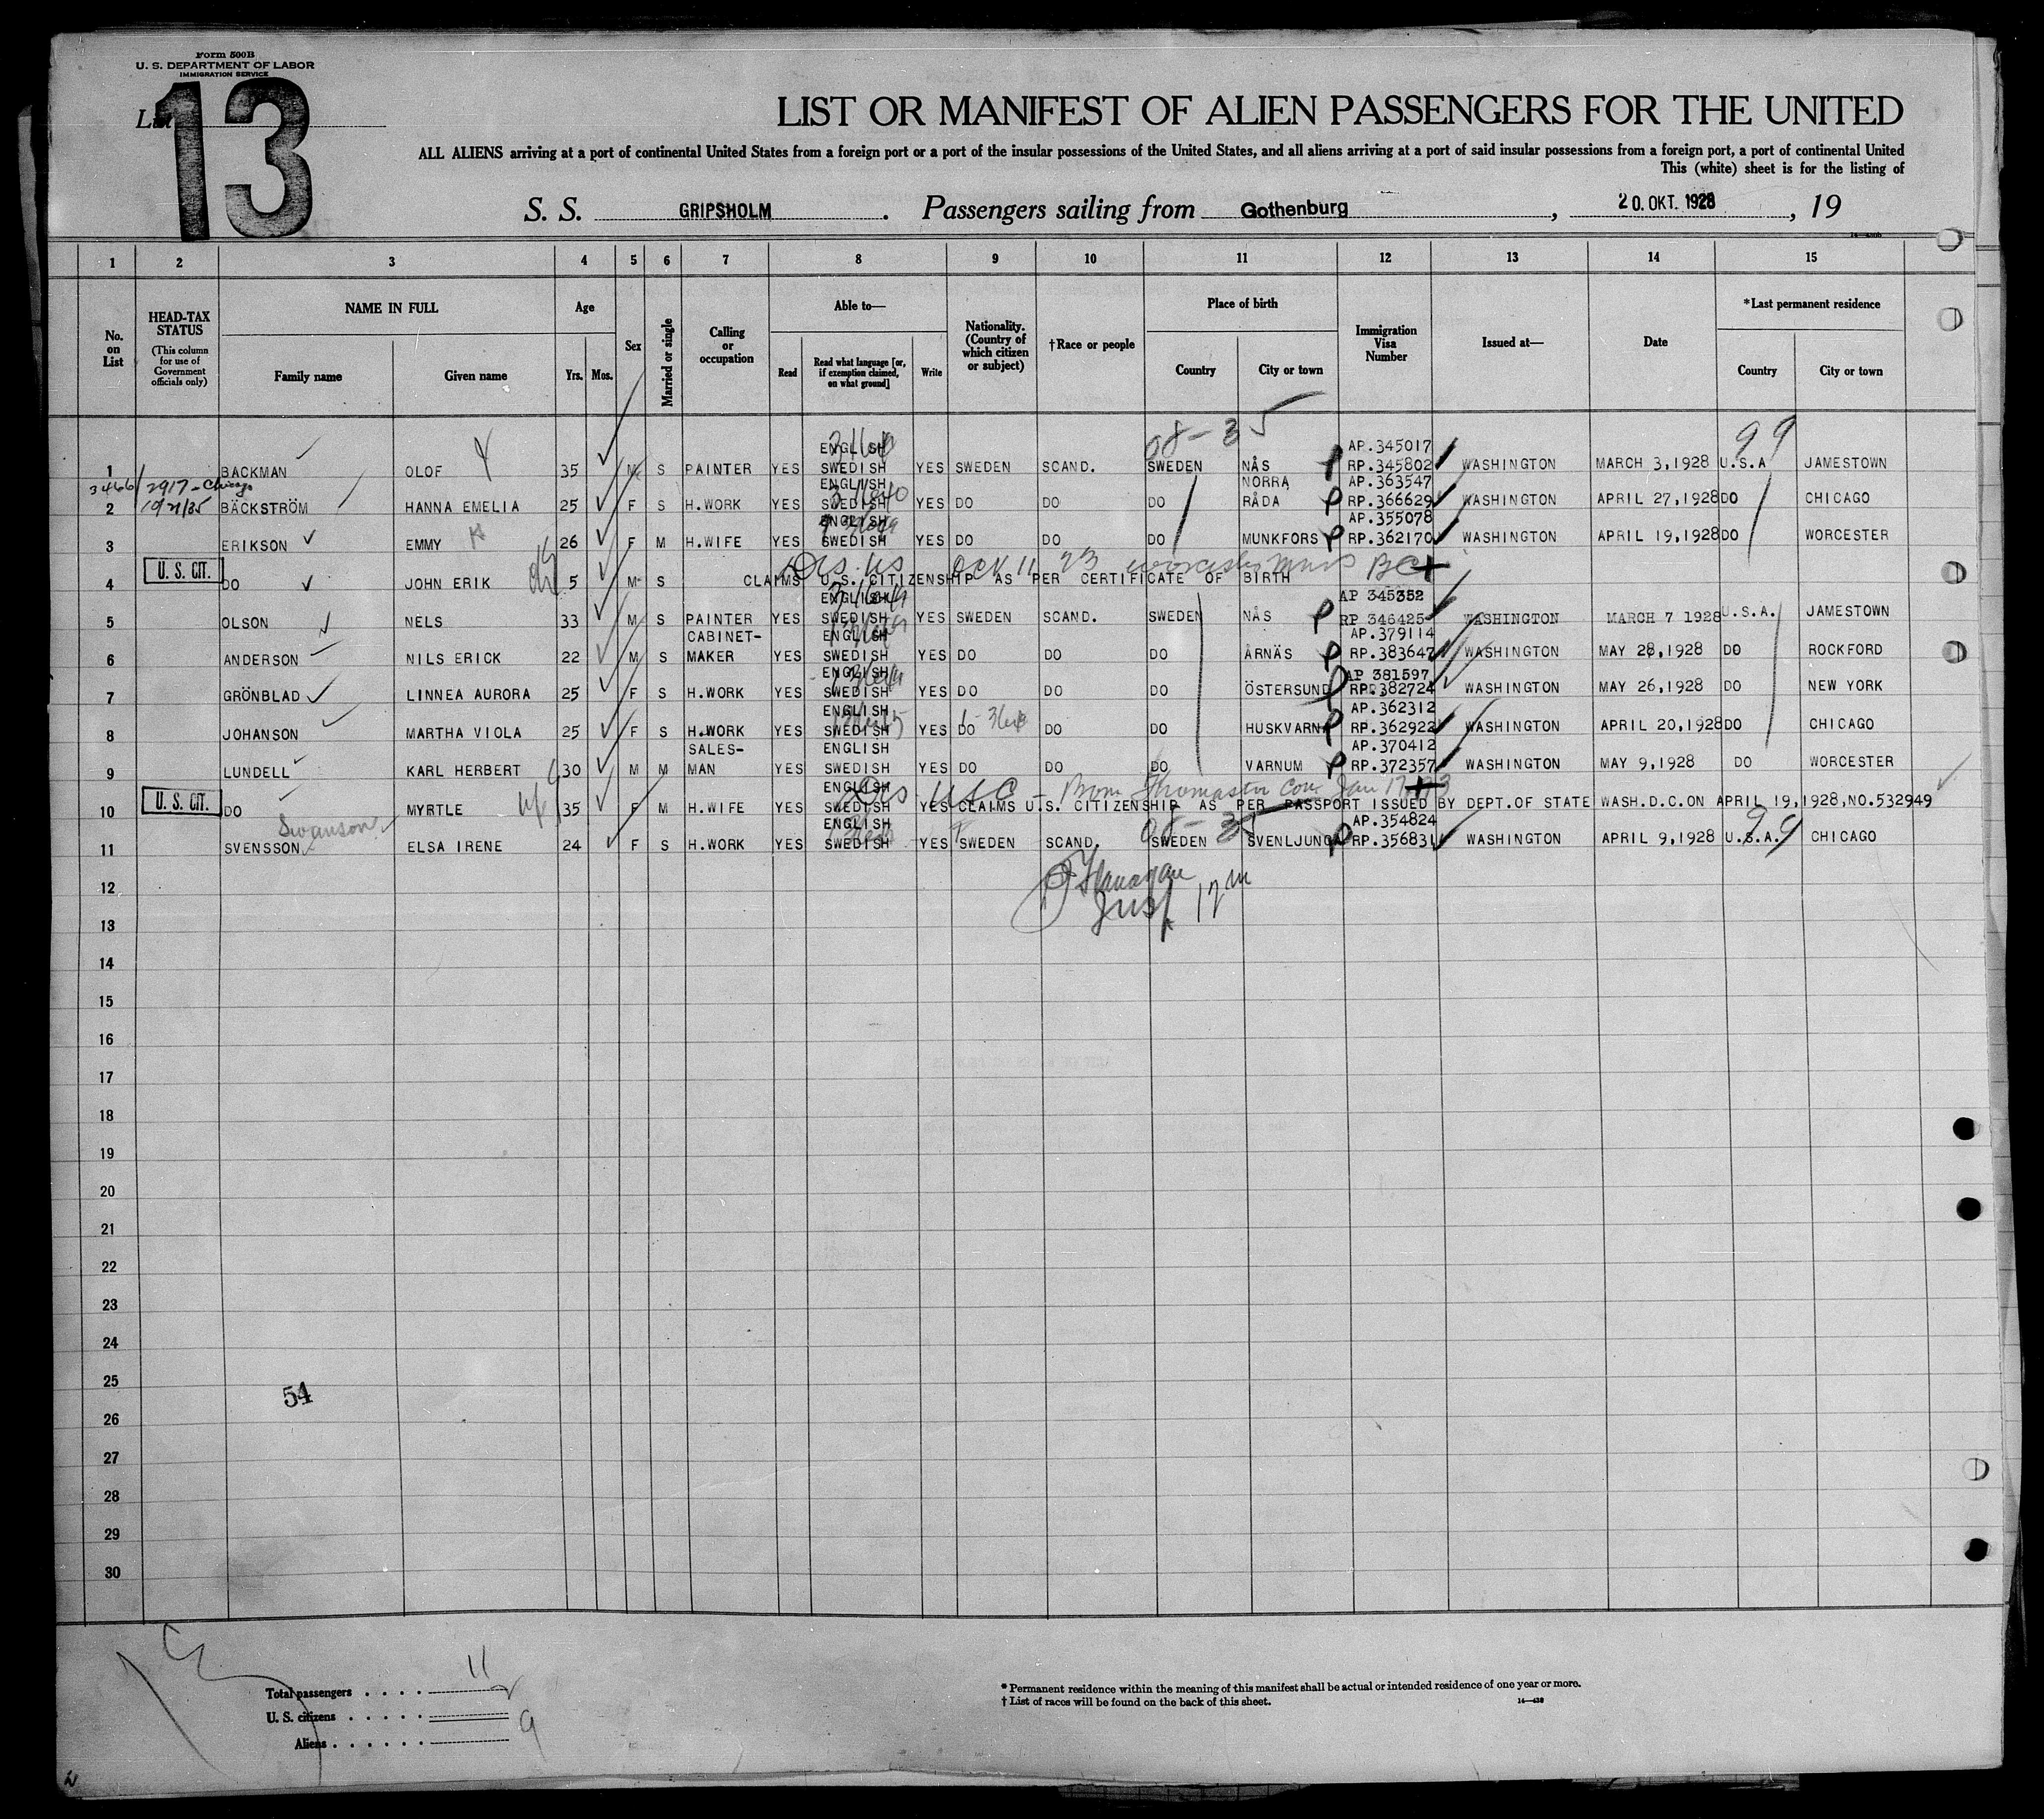 Form 500B
U. S. DEPARTMENT OF LABOR
IMMIGRATION SERVICE
List 13
LIST OR MANIFEST OF ALIEN PASSENGERS FOR THE UNITED
ALL ALIENS arriving at a port of continental United States from a foreign port or a port of the insular possessions of the United States, and all aliens arriving at a port of said insular possessions from a foreign port, a port of continental United
This (white) sheet is for the listing of
S. S. GRIPSHOLM. Passengers sailing from Gothenburg, 20. OKT. 1928, 19
1 2 3 4 5 6 7 8 9 10 11 12 13 14 15
No. on List
HEAD-TAX STATUS (This column for use of Government officials only)
NAME IN FULL Family name Given name
Age Yrs. Mos.
Sex
Married or single
Calling or occupation
Able to— Read Read what language [or, if exemption claimed, on what ground] Write
Nationality. (Country of which citizen or subject)
†Race or people
Place of birth Country City or town
Immigration Visa Number
Issued at—
Date
*Last permanent residence Country City or town
08-35 99
ENGLISH AP.345017
1 BACKMAN OLOF 35 M S PAINTER YES SWEDISH YES SWEDEN SCAND. SWEDEN NÅS RP.345802 WASHINGTON MARCH 3,1928 U.S.A JAMESTOWN
3466 2917-Chicago ENGLISH NORRA AP.363547
2 10/21/35 BÄCKSTRÖM HANNA EMELIA 25 F S H.WORK YES SWEDISH YES DO DO DO RÅDA RP.366629 WASHINGTON APRIL 27,1928 DO CHICAGO
ENGLISH AP.355078
3 ERIKSON EMMY 26 F M H.WIFE YES SWEDISH YES DO DO DO MUNKFORS RP.362170 WASHINGTON APRIL 19,1928 DO WORCESTER
U. S. CIT. Oct 11 23 Worcester Mass BC
4 DO JOHN ERIK 5 M S CLAIMS U.S. CITIZENSHIP AS PER CERTIFICATE OF BIRTH
ENGLISH AP 345352
5 OLSON NELS 33 M S PAINTER YES SWEDISH YES SWEDEN SCAND. SWEDEN NÅS RP 346425 WASHINGTON MARCH 7 1928 U.S.A. JAMESTOWN
CABINET- ENGLISH AP.379114
6 ANDERSON NILS ERICK 22 M S MAKER YES SWEDISH YES DO DO DO ÅRNÄS RP.383647 WASHINGTON MAY 28,1928 DO ROCKFORD
ENGLISH AP 381597
7 GRÖNBLAD LINNEA AURORA 25 F S H.WORK YES SWEDISH YES DO DO DO ÖSTERSUND RP.382724 WASHINGTON MAY 26,1928 DO NEW YORK
ENGLISH AP.362312
8 JOHANSON MARTHA VIOLA 25 F S H.WORK YES SWEDISH YES DO DO DO HUSKVARNA RP.362922 WASHINGTON APRIL 20,1928 DO CHICAGO
SALES- ENGLISH AP.370412
9 LUNDELL KARL HERBERT 30 M M MAN YES SWEDISH YES DO DO DO VARNUM RP.372357 WASHINGTON MAY 9,1928 DO WORCESTER
U. S. CIT. ENGLISH USC - Born Thomaston Con Jan 17
10 DO MYRTLE 35 F M H.WIFE YES SWEDISH YES CLAIMS U.S. CITIZENSHIP AS PER PASSPORT ISSUED BY DEPT.OF STATE WASH.D.C.ON APRIL 19,1928,NO.532949
Swanson ENGLISH 08-35 AP.354824 99
11 SVENSSON ELSA IRENE 24 F S H.WORK YES SWEDISH YES SWEDEN SCAND. SWEDEN SVENLJUNGA RP.356831 WASHINGTON APRIL 9,1928 U.S.A. CHICAGO
12
13
14
15
16
17
18
19
20
21
22
23
24
25
54
26
27
28
29
30
Total passengers . . . . 11
U. S. citizens . . . . . 2
Aliens . . . . . . 9
* Permanent residence within the meaning of this manifest shall be actual or intended residence of one year or more.
† List of races will be found on the back of this sheet. 14—430